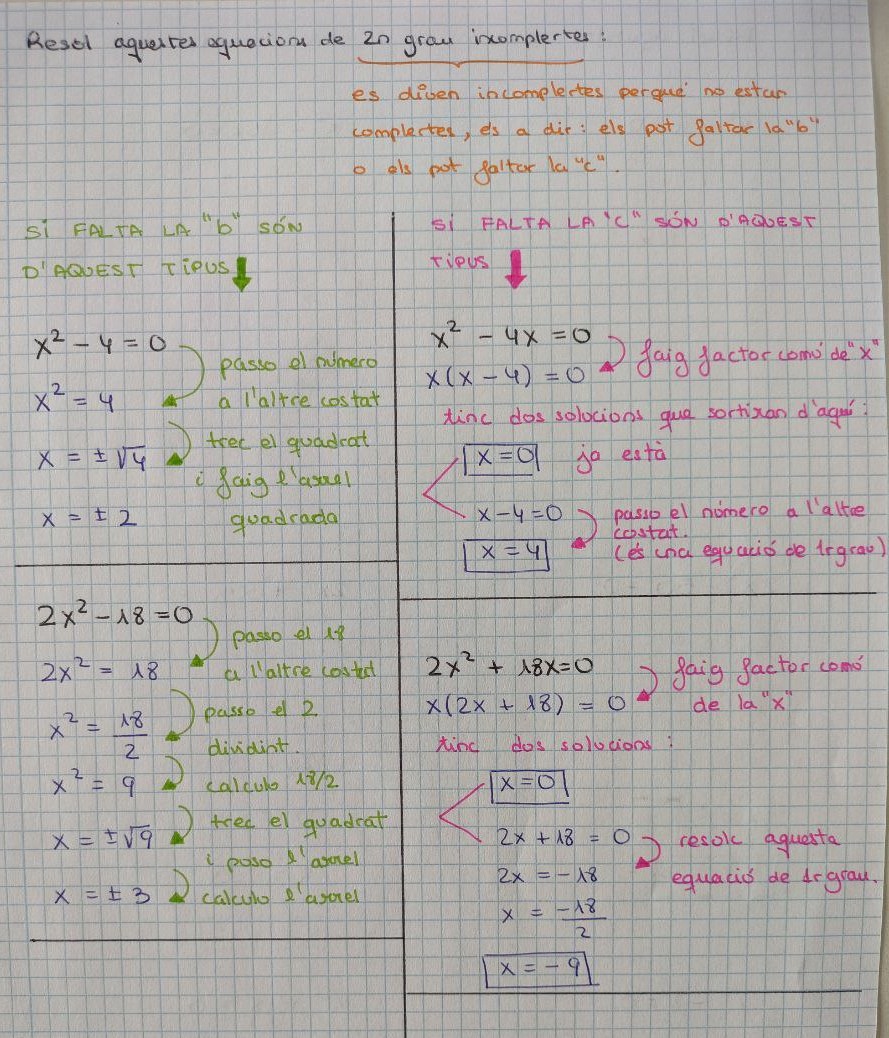 Resol aquestes equacions de 2n grau incomplertes:
es diuen incomplertes perquè no estan
complertes, és a dir: els pot faltar la "b"
o els pot faltar la "c".
SI FALTA LA "b" SÓN
D'AQUEST TIPUS
x² - 4 = 0
passo el número
x² = 4
a l'altre costat
trec el quadrat
x = ±√4
i faig l'arrel
x = ± 2
quadrada
2x² - 18 = 0
passo el 18
2x² = 18
a l'altre costat
x² = 18/2
passo el 2
dividint.
x² = 9
calculo 18/2
trec el quadrat
x = ±√9
i poso l'arrel
x = ± 3
calculo l'arrel
SI FALTA LA "C" SÓN D'AQUEST
TIPUS
x² - 4x = 0
faig factor comú de "x"
x(x - 4) = 0
tinc dos solucions que sortiran d'aquí:
x = 0 ja està
x - 4 = 0
passo el número a l'altre
costat.
x = 4
(és una equació de 1r grau)
2x² + 18x = 0
faig factor comú
x(2x + 18) = 0
de la "x"
tinc dos solucions:
x = 0
2x + 18 = 0
resolc aquesta
2x = -18
equació de 1r grau.
x = -18/2
x = - 9